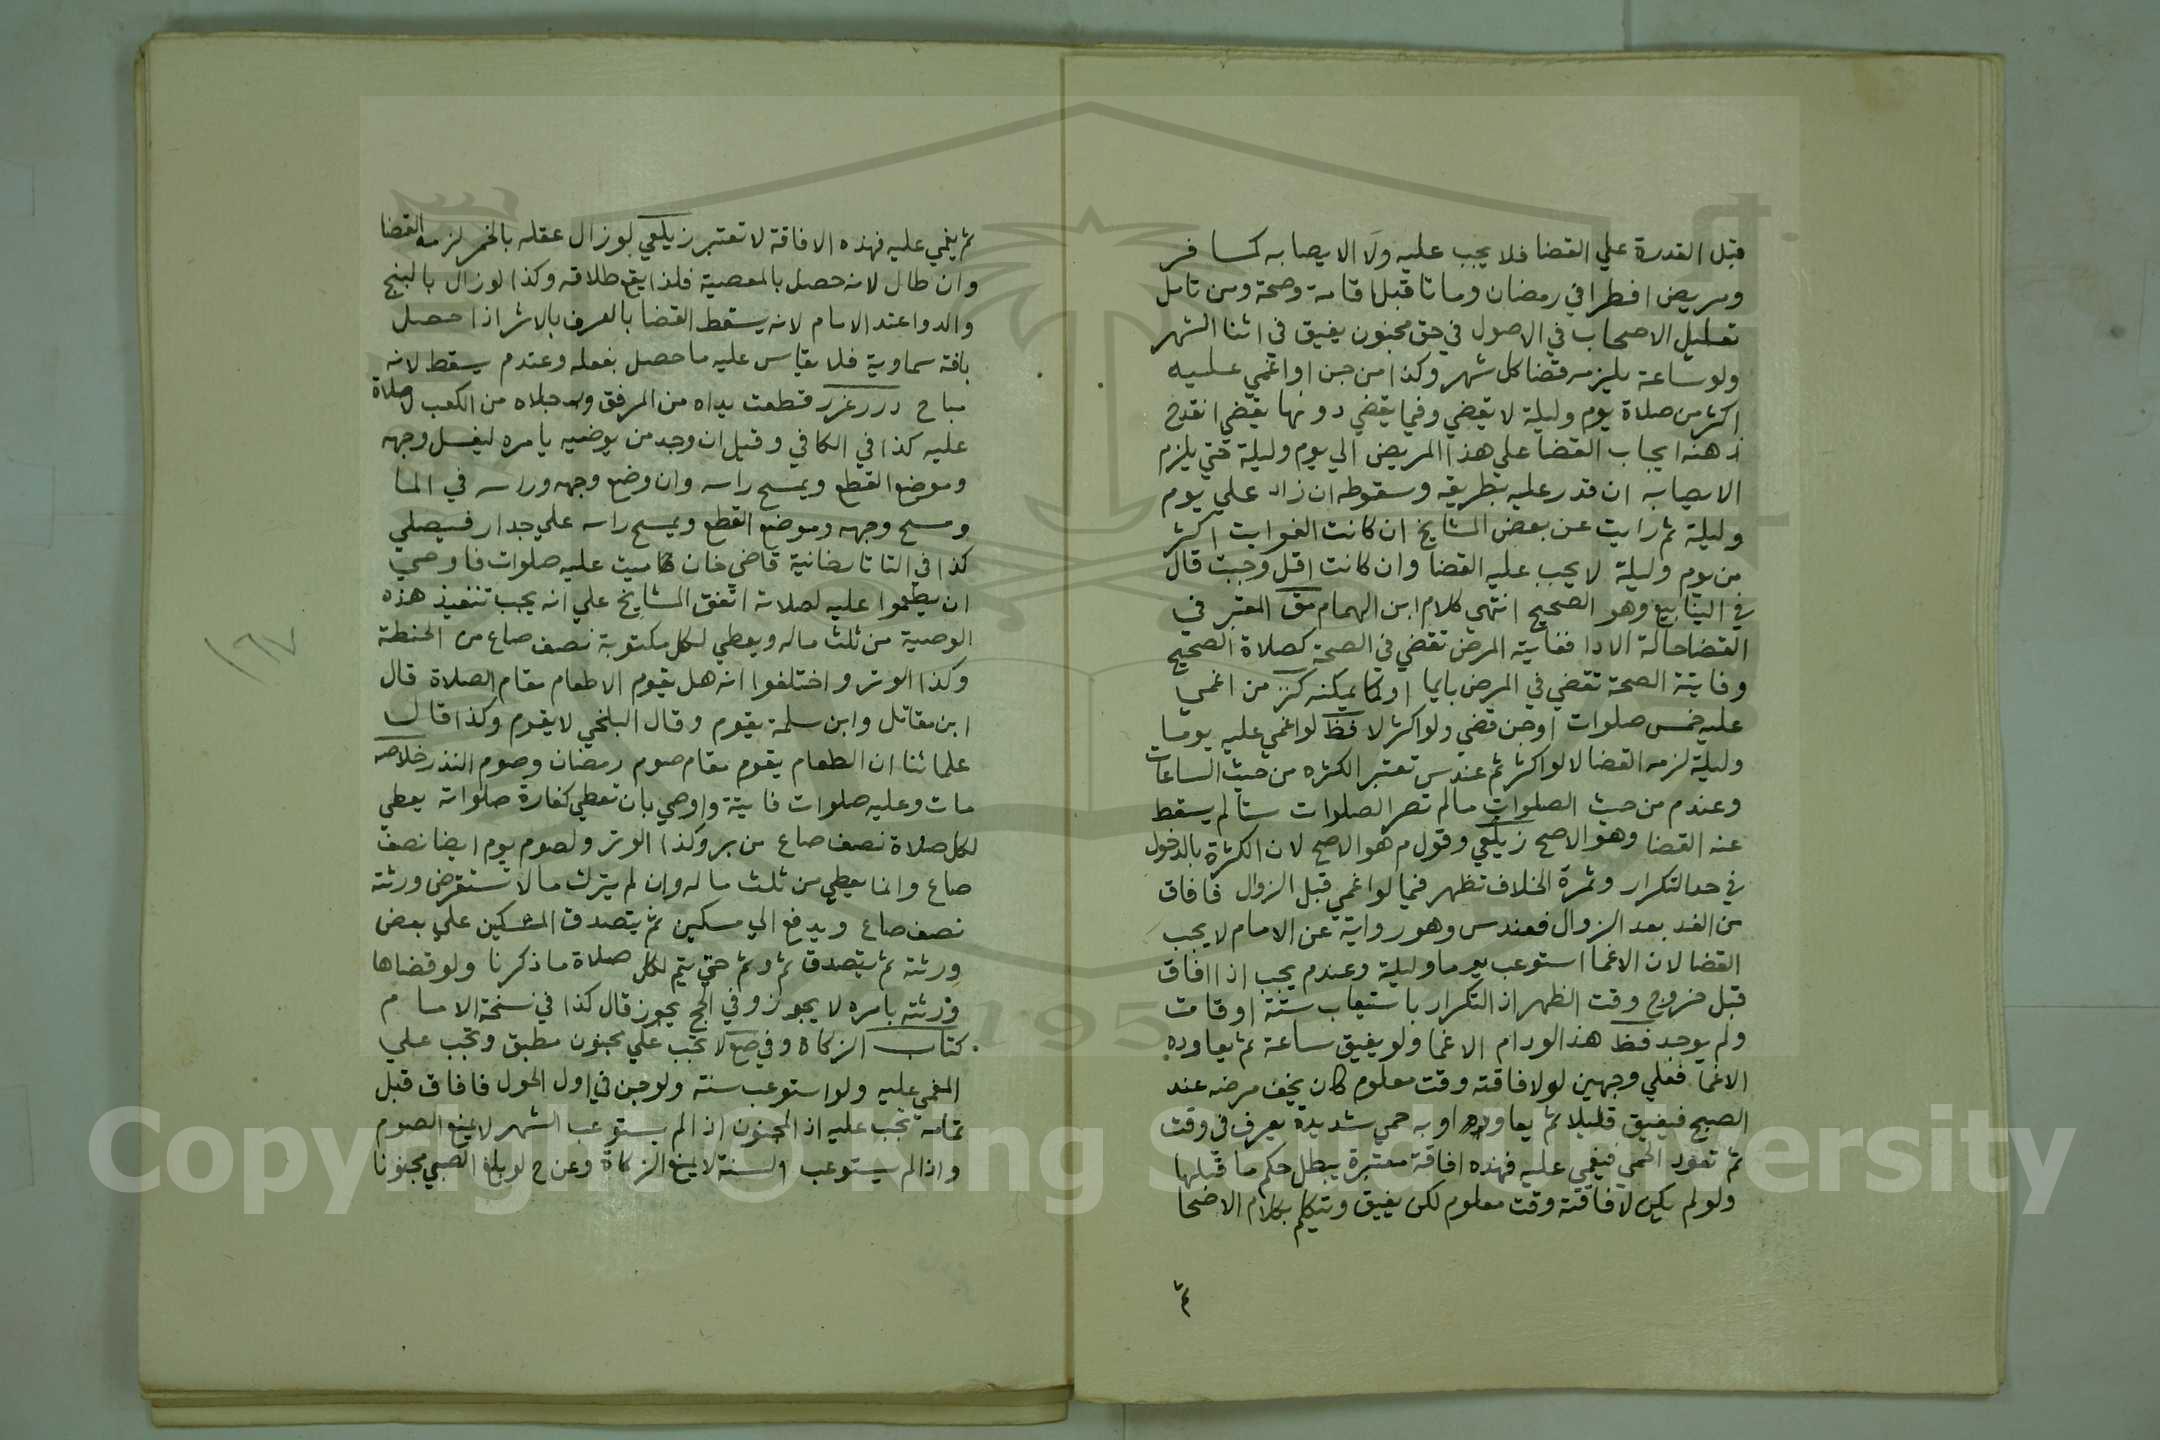 قبل القدرة علي القضا فلا يجب عليه ولا الايصا به كمسافر
ومريض افطرا في رمضان وماتا قبل اقامة وصحة ومن تامل
تعليل الاصحاب في الاصول في حق مجنون يفيق في اثنا الشهر
ولو ساعة يلزمه قضا كل شهر وكذا من جن او اغمي عليه
اكثر من صلاة يوم وليلة لا يقضي وفيما يقضي دونها يقضي انقدح
ذهنه ايجاب القضا علي هذا المريض الي يوم وليلة حتي يلزم
الايصا به ان قدر عليه بطريقه وسقوطه ان زاد علي يوم
وليلة ثم رايت عن بعض المشايخ ان كانت الفوايت اكثر
من يوم وليلة لا يجب عليه القضا وان كانت اقل وجبت قال
في الينابيع وهو الصحيح انتهي كلام ابن الهمام مق المعتبر في
القضا حالة الادا ففايتة المرض تقضي في الصحة كصلاة الصحيح
وفايتة الصحة تقضي في المرض بايما او كما يمكنه كنز من اغمي
عليه خمس صلوات او جن قضي ولو اكثر لا فظ لو اغمي عليه يوما
وليلة لزمه القضا لا لو اكثر ثم عند س تعتبر الكثره من حيث الساعات
وعند م من حيث الصلوات ما لم تصر الصلوات ستا لم يسقط
عنه القضا وهو الاصح زيلعي وقول م هو الاصح لان الكثرة بالدخول
في حد التكرار وثمرة الخلاف تظهر فيما لو اغمي قبل الزوال فافاق
من الغد بعد الزوال فعند س وهو رواية عن الامام لا يجب
القضا لان الاغما استوعب يوما وليلة وعند م يجب اذا افاق
قبل خروج وقت الظهر اذ التكرار باستيعاب ستة اوقات
ولم يوجد فظ هذا لو دام الاغما ولو يفيق ساعة ثم يعاوده
الاغما فعلي وجهين لو لافاقته وقت معلوم كان يخف مرضه عند
الصبح فيفيق قليلا ثم يعاوده او به حمي شديدة يعرف في وقت
ثم تعود الحمي فيغمي عليه فهذه افاقة معتبرة يبطل حكم ما قبلها
ولو لم يكن لافاقته وقت معلوم لكن يفيق ويتكلم بكلام الاصحا
ثم
ثم يغمي عليه فهذه الافاقة لا تعتبر زيلعي لو زال عقله بالخمر لزمه القضا
وان طال لانه حصل بالمعصية فلذا يقع طلاقه وكذا لو زال بالبنج
والدوا عند الامام لانه يسقط القضا بالعرف بالاثر اذا حصل
بافة سماوية فلا يقاس عليه ما حصل بفعله وعند م يسقط لانه
مباح درر غرر قطعت يداه من المرفق ورجلاه من الكعب لا صلاة
عليه كذا في الكافي وقيل ان وجد من يوضيه يامره ليغسل وجهه
وموضع القطع ويمسح راسه وان وضع وجهه وراسه في الما
ومسح وجهه وموضع القطع ويمسح راسه علي جدار فيصلي
كذا في التاتارخانية قاضي خان ميت عليه صلوات فاوصي
ان يطعموا عليه لصلاته اتفق المشايخ علي انه يجب تنفيذ هذه
الوصية من ثلث ماله ويعطي لكل مكتوبة نصف صاع من الحنطة
وكذا الوتر واختلفوا انه هل يقوم الاطعام مقام الصلاة قال
ابن مقاتل وابن سلمة يقوم وقال البلخي لا يقوم وكذا قال
علمائنا ان الطعام يقوم مقام صوم رمضان وصوم النذر خلاصه
مات وعليه صلوات فايتة واوصي بان تعطي كفارة صلواته يعطي
لكل صلاة نصف صاع من بر وكذا الوتر ولصوم يوم ايضا نصف
صاع وانما يعطي من ثلث ماله وان لم يترك مالا تستقرض ورثته
نصف صاع ويدفع الي مسكين ثم يتصدق المسكين علي بعض
ورثته ثم يتصدق ثم وثم حتي يتم لكل صلاة ما ذكرنا ولو قضاها
ورثته بامره لا يجوز وفي الحج يجوز قال كذا في نسخة الامام
كتاب الزكاة وفي صع لا تجب علي مجنون مطبق وتجب علي
المغمي عليه ولو استوعب سنة ولو جن في اول الحول فافاق قبل
تمامه تجب عليه اذ المجنون اذا لم يستوعب الشهر لا يمنع الصوم
واذا لم يستوعب السنة لا يمنع الزكاة وعن ح لو بلغ الصبي مجنونا
١٦٧
1957
Copyright © King Saud University